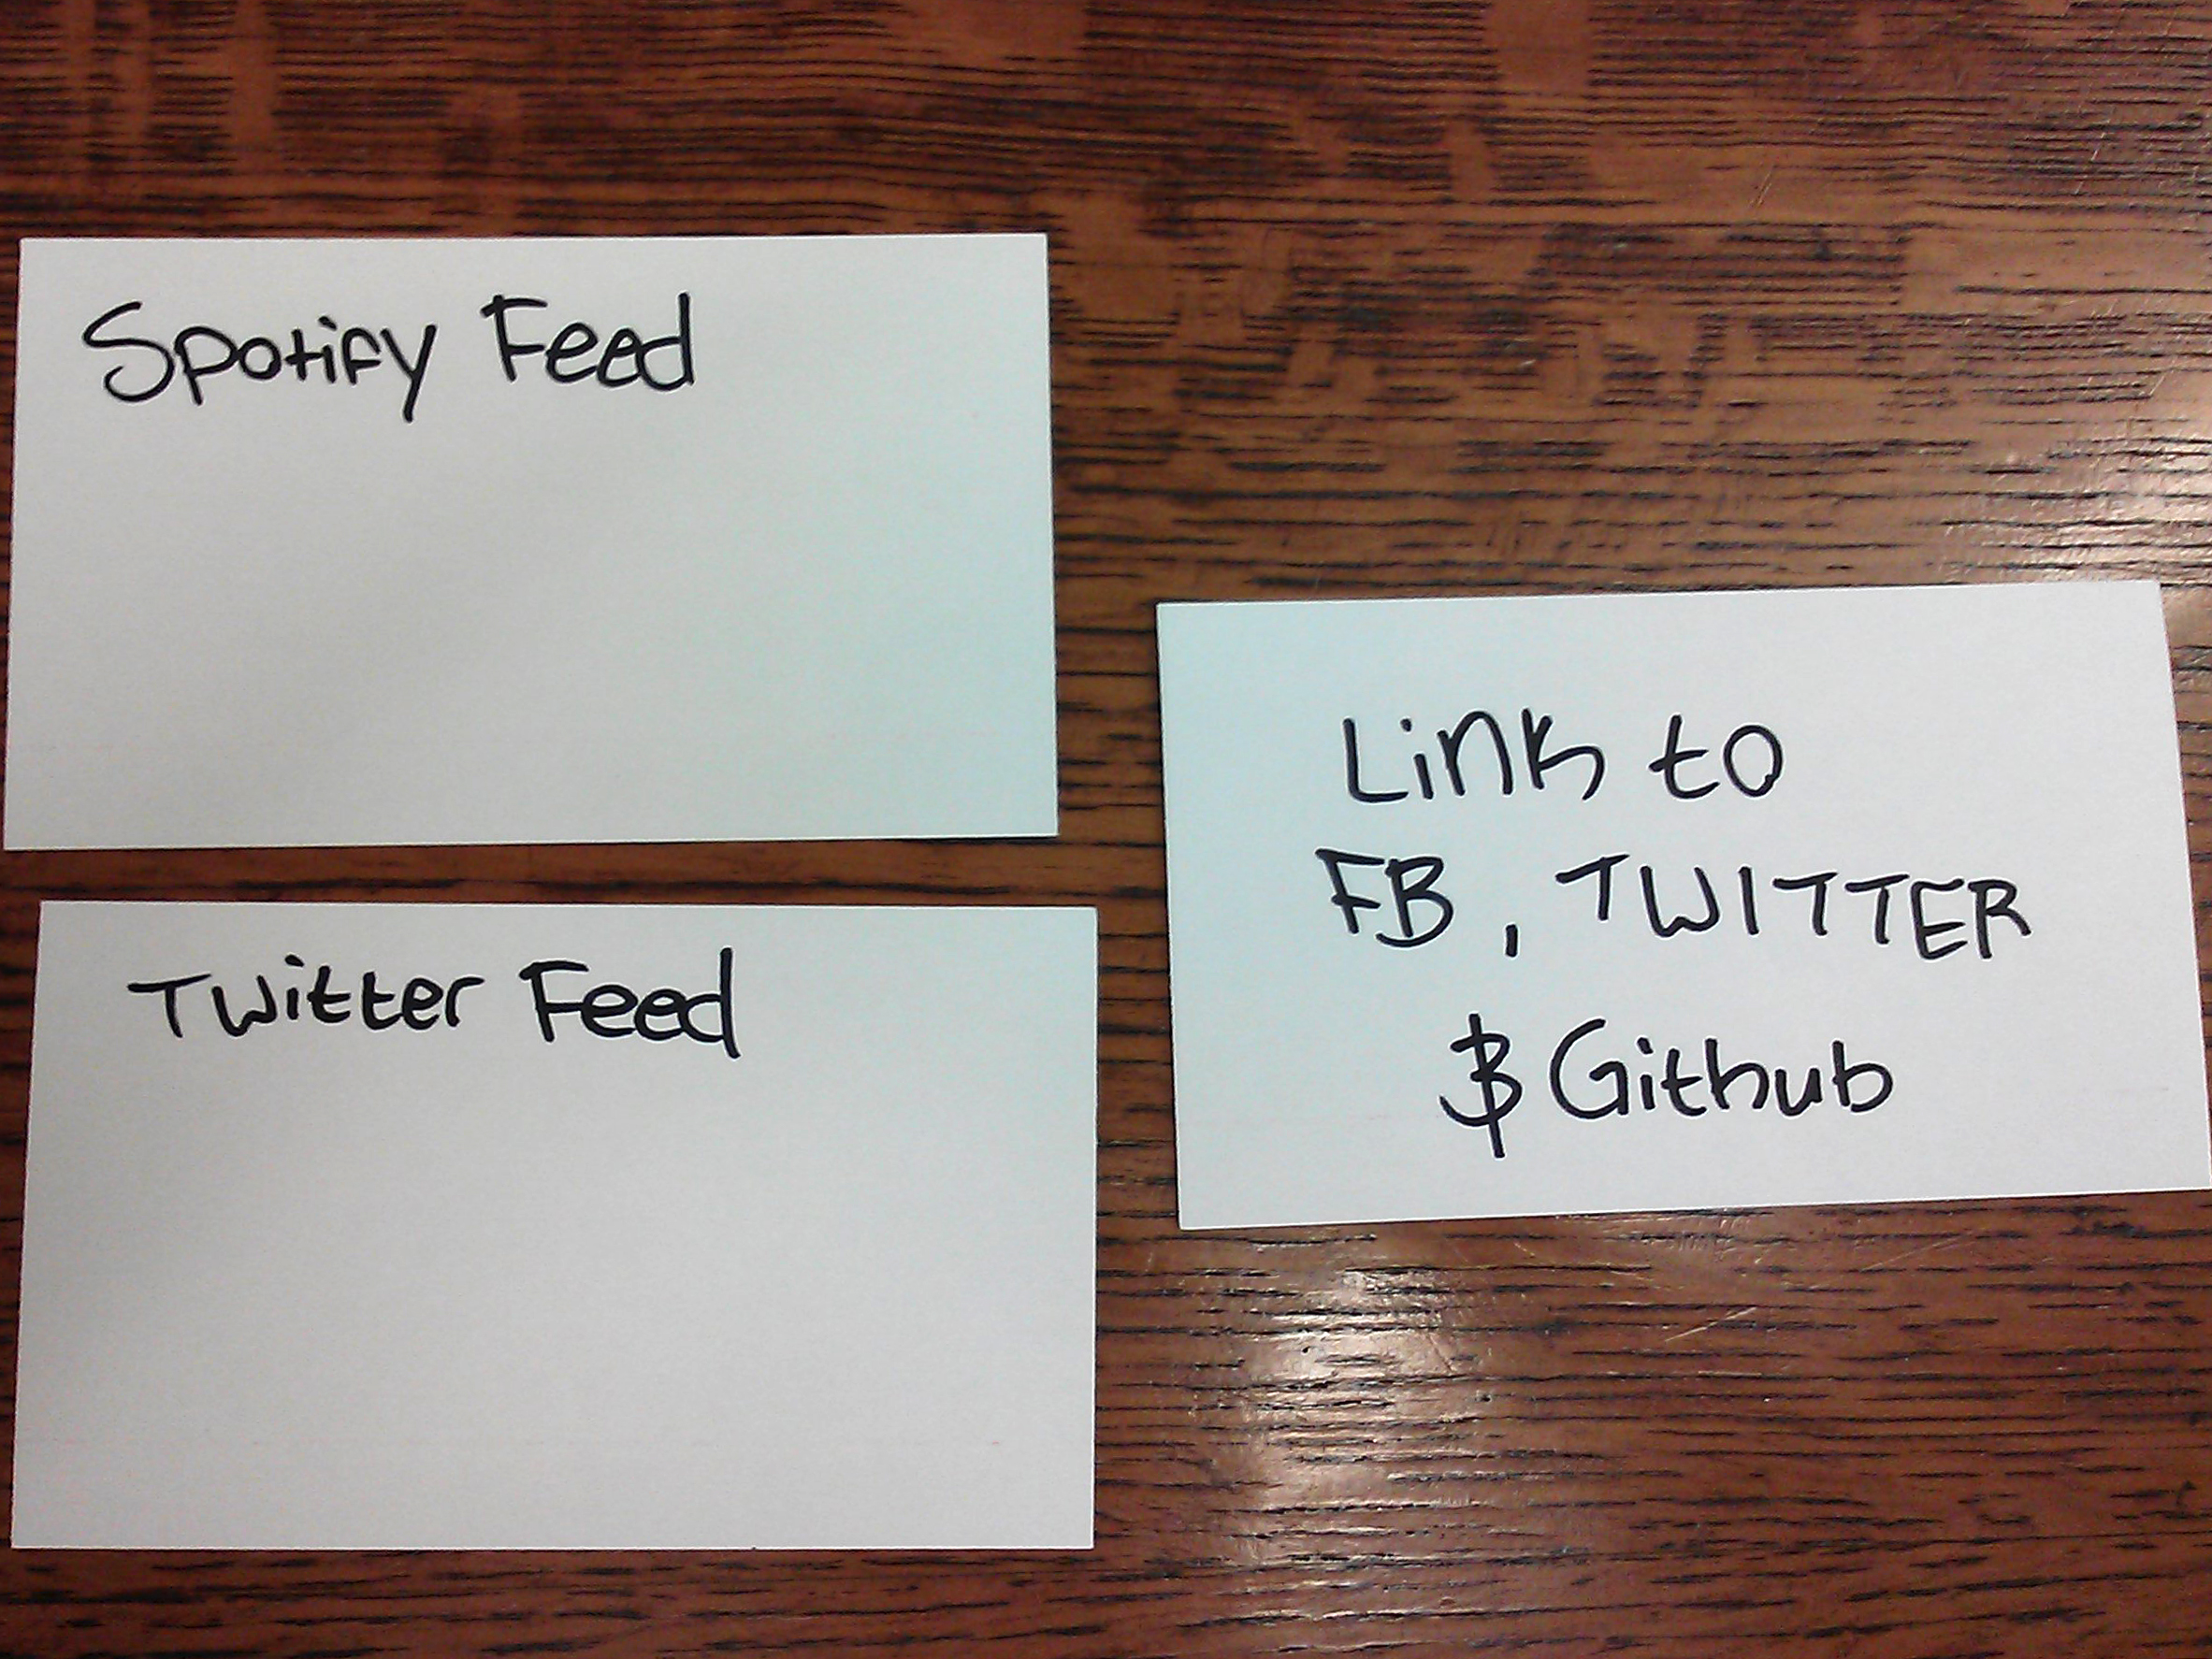 Spotify Feed
Twitter Feed
Link to
FB, TWITTER
$ Github